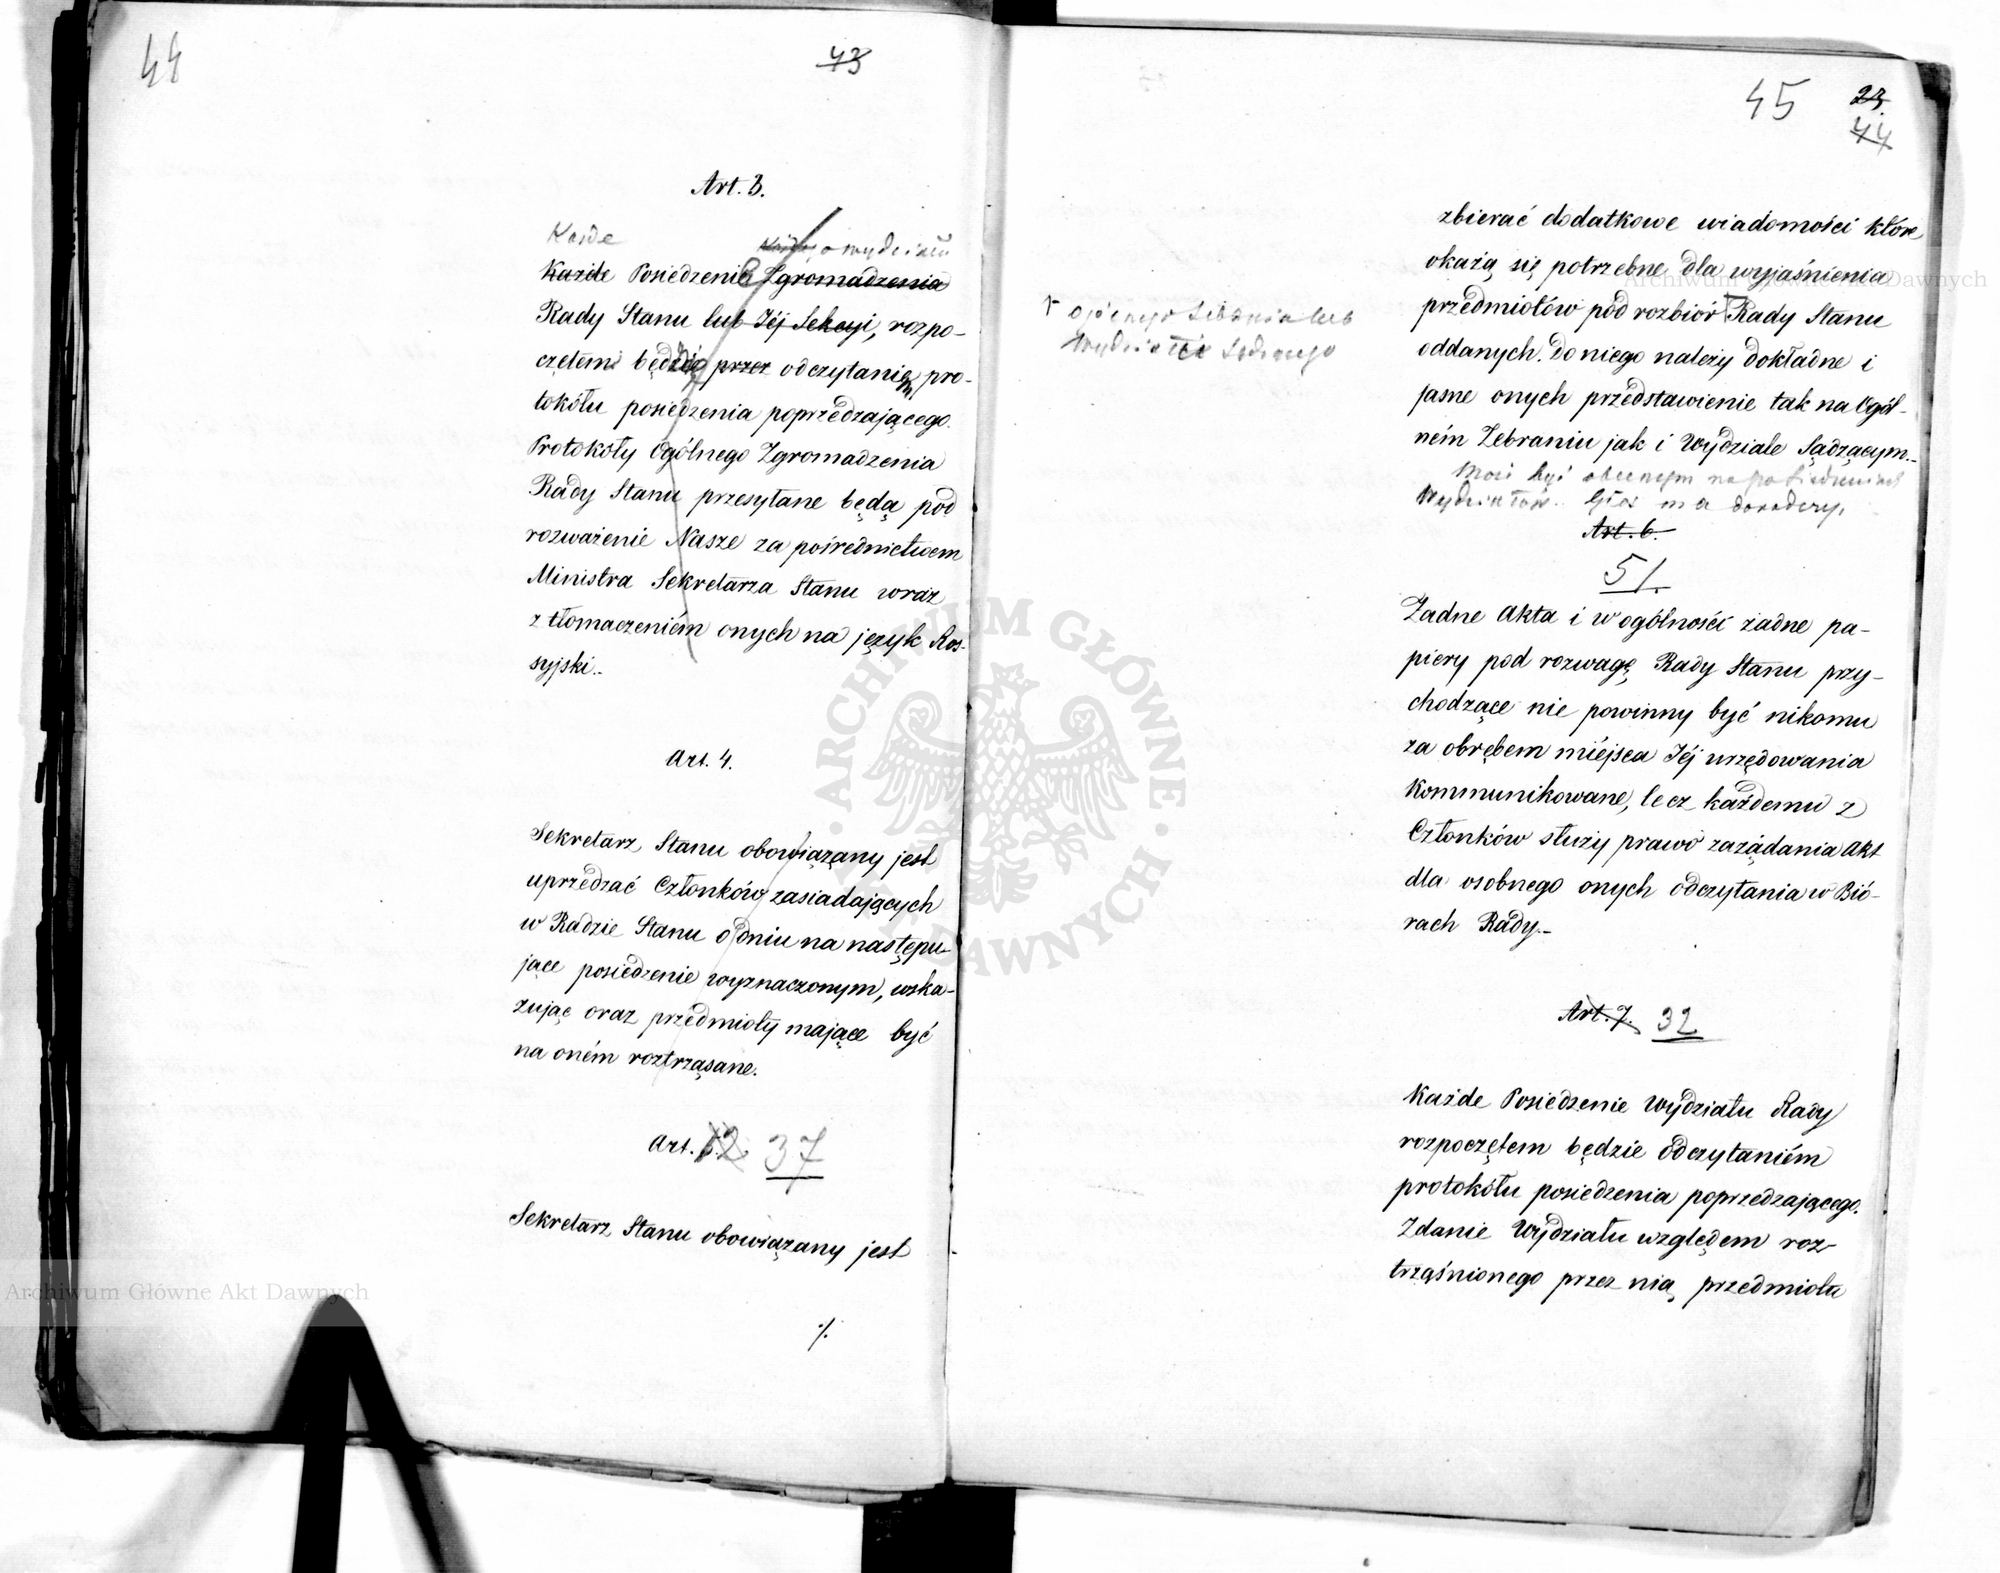 44
43
Art. 3.
Każde
Każde Posiedzenie Zgromadzenia
Rady Stanu lub Jéj Sekcyi, rozpo-
czętem będzie przez odczytaniem pro-
tokółu posiedzenia poprzedzającego.
Protokóły Ogólnego Zgromadzenia
Rady Stanu przesyłane będą pod
rozważenie Nasze za pośrednictwem
Ministra Sekretarza Stanu wraz
z tłomaczeniém onych na język Ros-
syjski.-
Art. 4.
Sekretarz Stanu obowiązany jest
uprzedzać Członków zasiadających
w Radzie Stanu o dniu na następu-
jące posiedzenie wyznaczonym, wska-
zując oraz przedmioty mające być
na oném roztrząsane.
Art. 37
Sekretarz Stanu obowiązany jest
./.
45
23.
44
zbierać dodatkowe wiadomości które
okażą się potrzebne dla wyjaśnienia
przedmiotów pod rozbiór Rady Stanu
ogólnego Zebrania lub
Wydziału Sądowego
oddanych. Do niego należy dokładne i
jasne onych przedstawienie tak na Ogól-
ném Zebraniu jak i Wydziale Sądzącym.-
Może być obecnym na posiedzeniach
Wydziałów. Głos ma doradczy.
Art. 6.
51.
Żadne Akta i w ogólności żadne pa-
piery pod rozwagę Rady Stanu przy-
chodzące nie powinny być nikomu
za obrębem miéjsca Jéj urzędowania
kommunikowane, lecz każdemu z
Członków służy prawo zażądania Akt
dla osobnego onych odczytania w Bió-
rach Rady.-
Art. 7. 32
Każde Posiedzenie Wydziału Rady
rozpoczętem będzie odczytaniém
protokółu posiedzenia poprzedzającego.
Zdanie Wydziału względem roz-
trząśnionego przez nią przedmiotu
Archiwum Główne Akt Dawnych
Archiwum Główne Akt Dawnych
ARCHIWUM GŁÓWNE AKT DAWNYCH